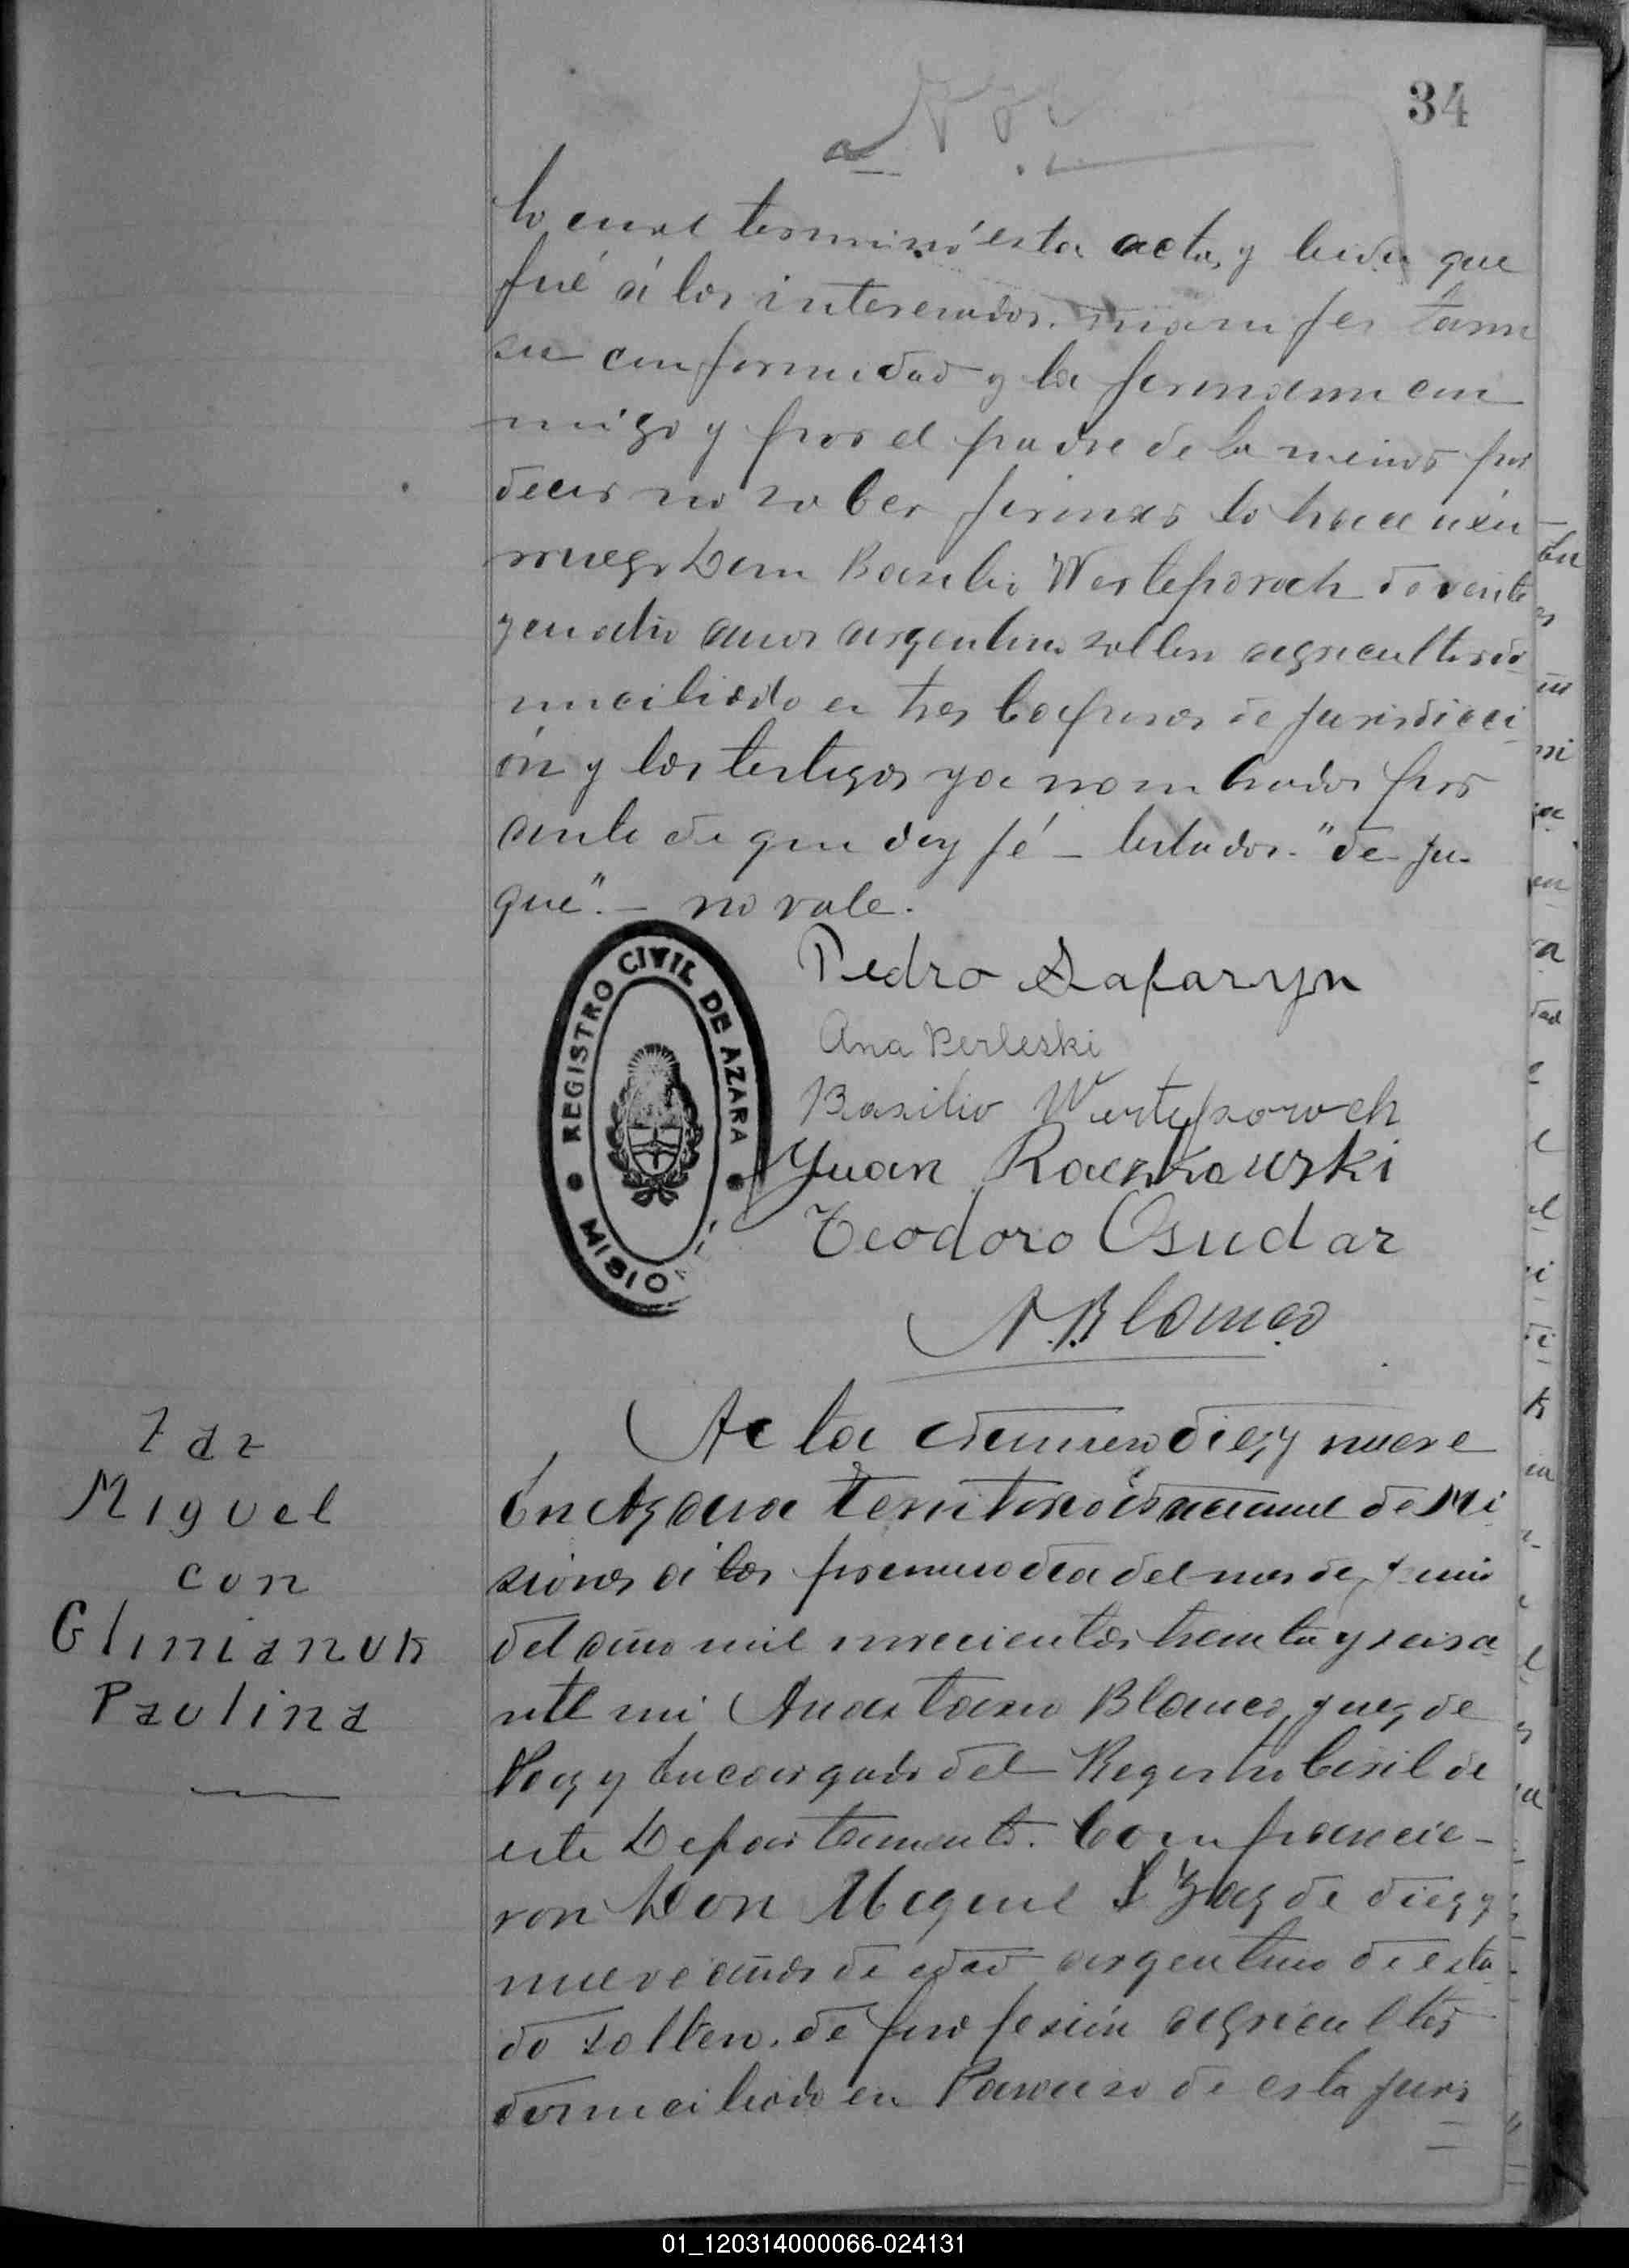 34
lo cual terminó esta acta, y leida que
fué á los interesados. manifestaron
su conformidad y la firmaron con
migo y por el padre de la menor por
decir no saber firmar lo hace a su
ruego Don Basilio Westeporoch de veinte
y cuatro años argentino soltero agricultor do
miciliado en tres Capones de jurisdicci
ón y los testigos ya nombrados por
ante de que doy fé _ testados. "de ju-
que". _ no vale.
Pedro Safaryn
Ana Berleski
Basilio Wertyporoch
Juan Raczkowski
Teodoro Osudar
A. Blanco
REGISTRO CIVIL DE AZARA
MISIO
Zaz
Miguel
con
Glinianuk
Paulina
Acta número diez y nueve
En Azara territorio nacional de Mi
siones á los primero dia del mes de Junio
del año mil novecientos treinta y seis a
nte mi Anastacio Blanco, Juez de
Paz y Encargado del Registro Civil de
este Departamento. Comparecie-
ron Don Miguel Zaz de diez y
nueve años de edad argentino de esta
do soltero. de profesión agricultor
domiciliado en Paraiso de esta juris